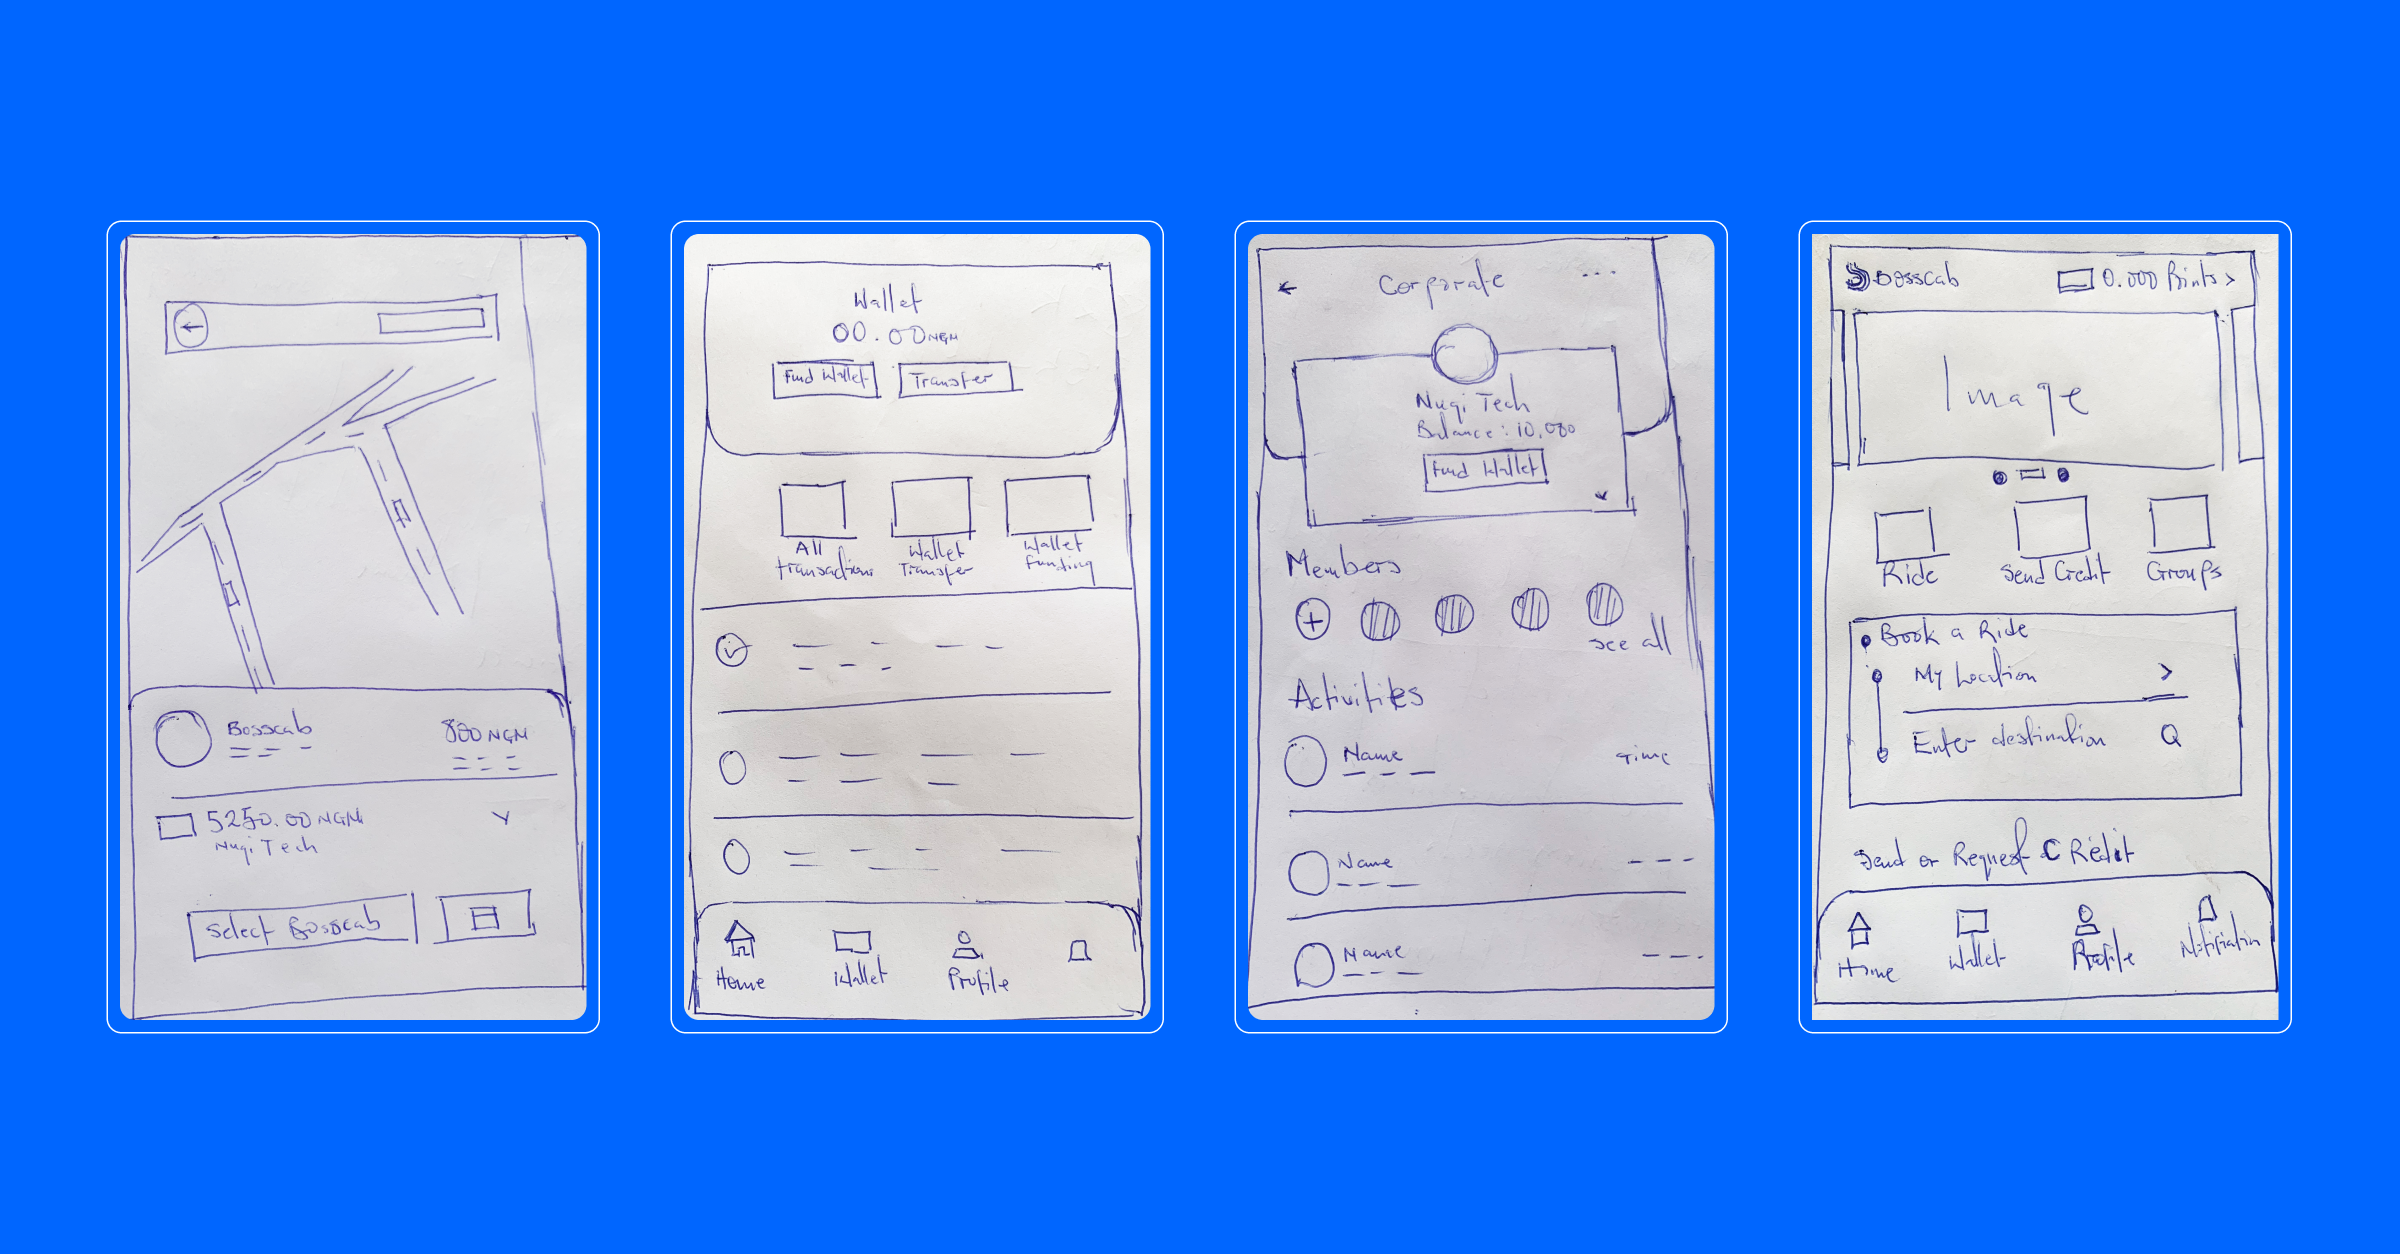 Bosscab
800 NGN
5250.00 NGN
Nuqi Tech
Select Bosscab
Wallet
00.00 NGN
Fund Wallet
Transfer
All transactions
Wallet Transfer
Wallet funding
Home
Wallet
Profile
Corporate
...
Nuqi Tech
Balance: 10,000
Fund Wallet
Members
see all
Activities
Name
Time
Name
Name
Bosscab
0.000 Points >
Image
Ride
Send Credit
Groups
Book a Ride
My Location
Enter destination
Send or Request Credit
Home
Wallet
Profile
Notification